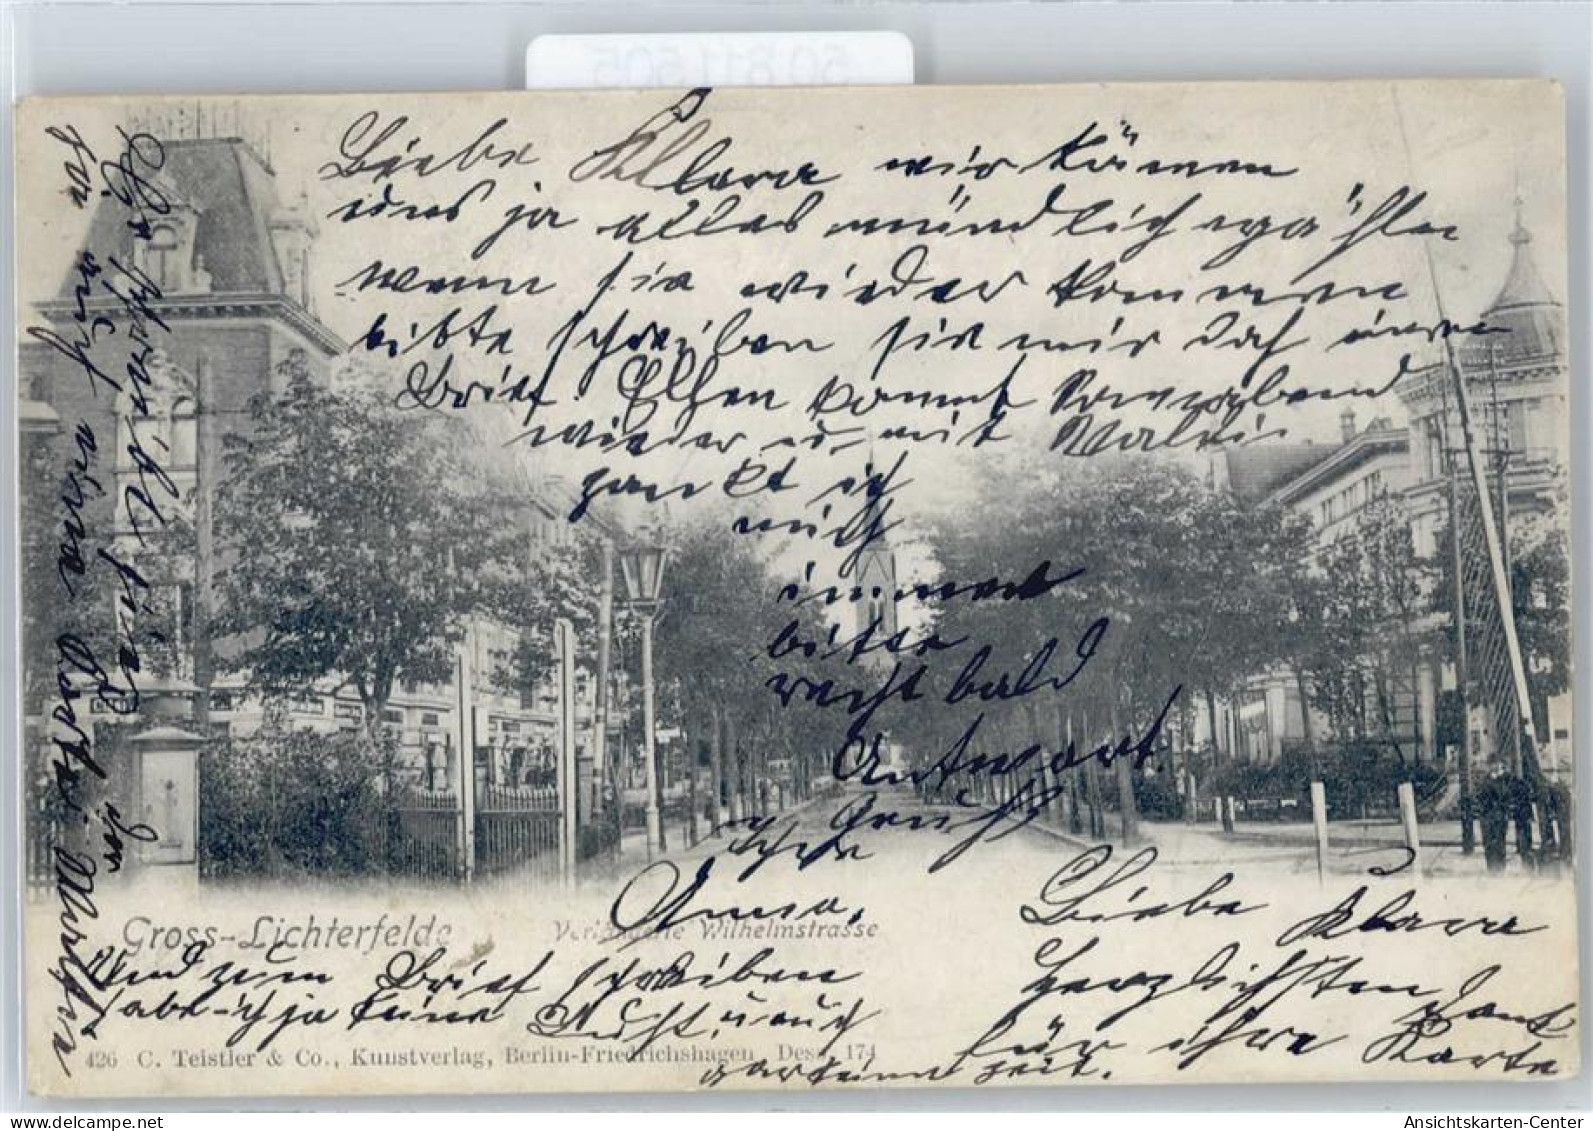 Liebe Klara wir können
uns ja alles mündlich erzählen
wenn sie wieder kommen
bitte schreiben sie mir doch einen
Brief. Elsen kommt Sonnabend
wieder mit
zankt ich
mich
immer
bitte
recht bald
Antwort.
Gruß
Ihre
Anna.
Liebe Klara
Herzlichsten Dank
für ihre Karte
Gross-Lichterfelde Verlängerte Wilhelmstrasse
Und zum Brief schreiben
habe ich ja keine Lust u auch
gar keine zeit.
426 C. Teistler & Co., Kunstverlag, Berlin-Friedrichshagen Dess. 174
50 811 505
Ansichtskarten-Center